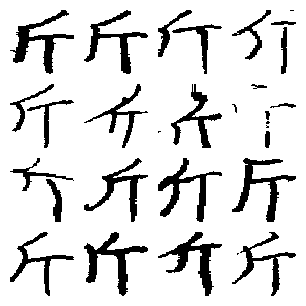 斤斤斤斤
斤斤斤
斤斤斤斤
斤斤斤斤